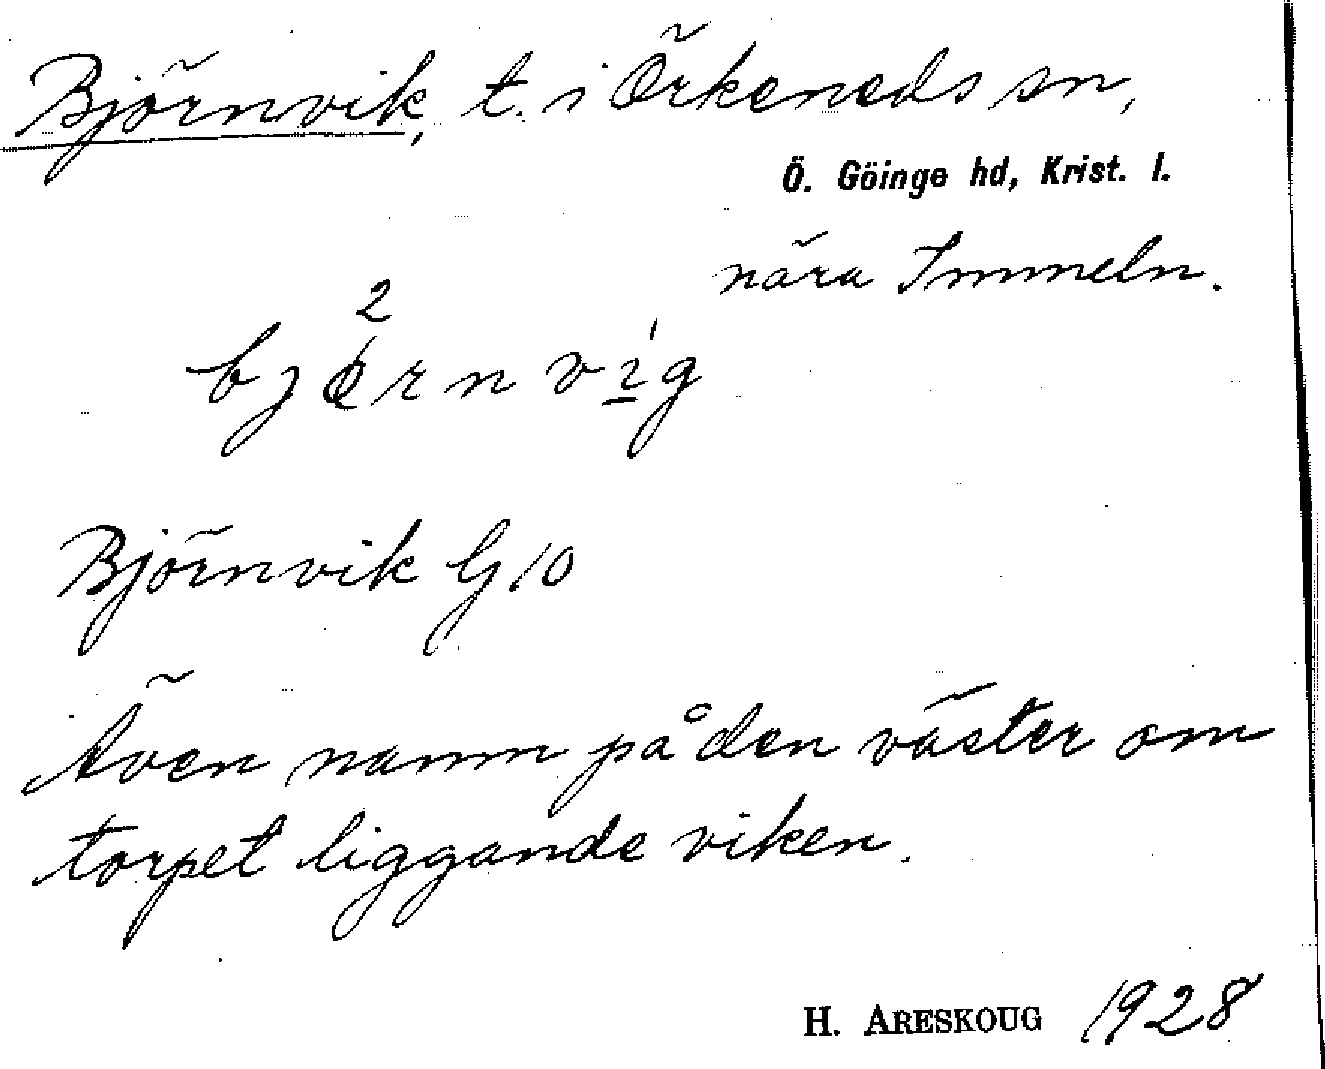 Björnvik, t. i Örkeneds sn,
Ö. Göinge hd, Krist. l.
nära Immeln.
2
bjørnvig
Björnvik G 10
Även namn på den väster om
torpet liggande viken.
H. ARESKOUG 1928